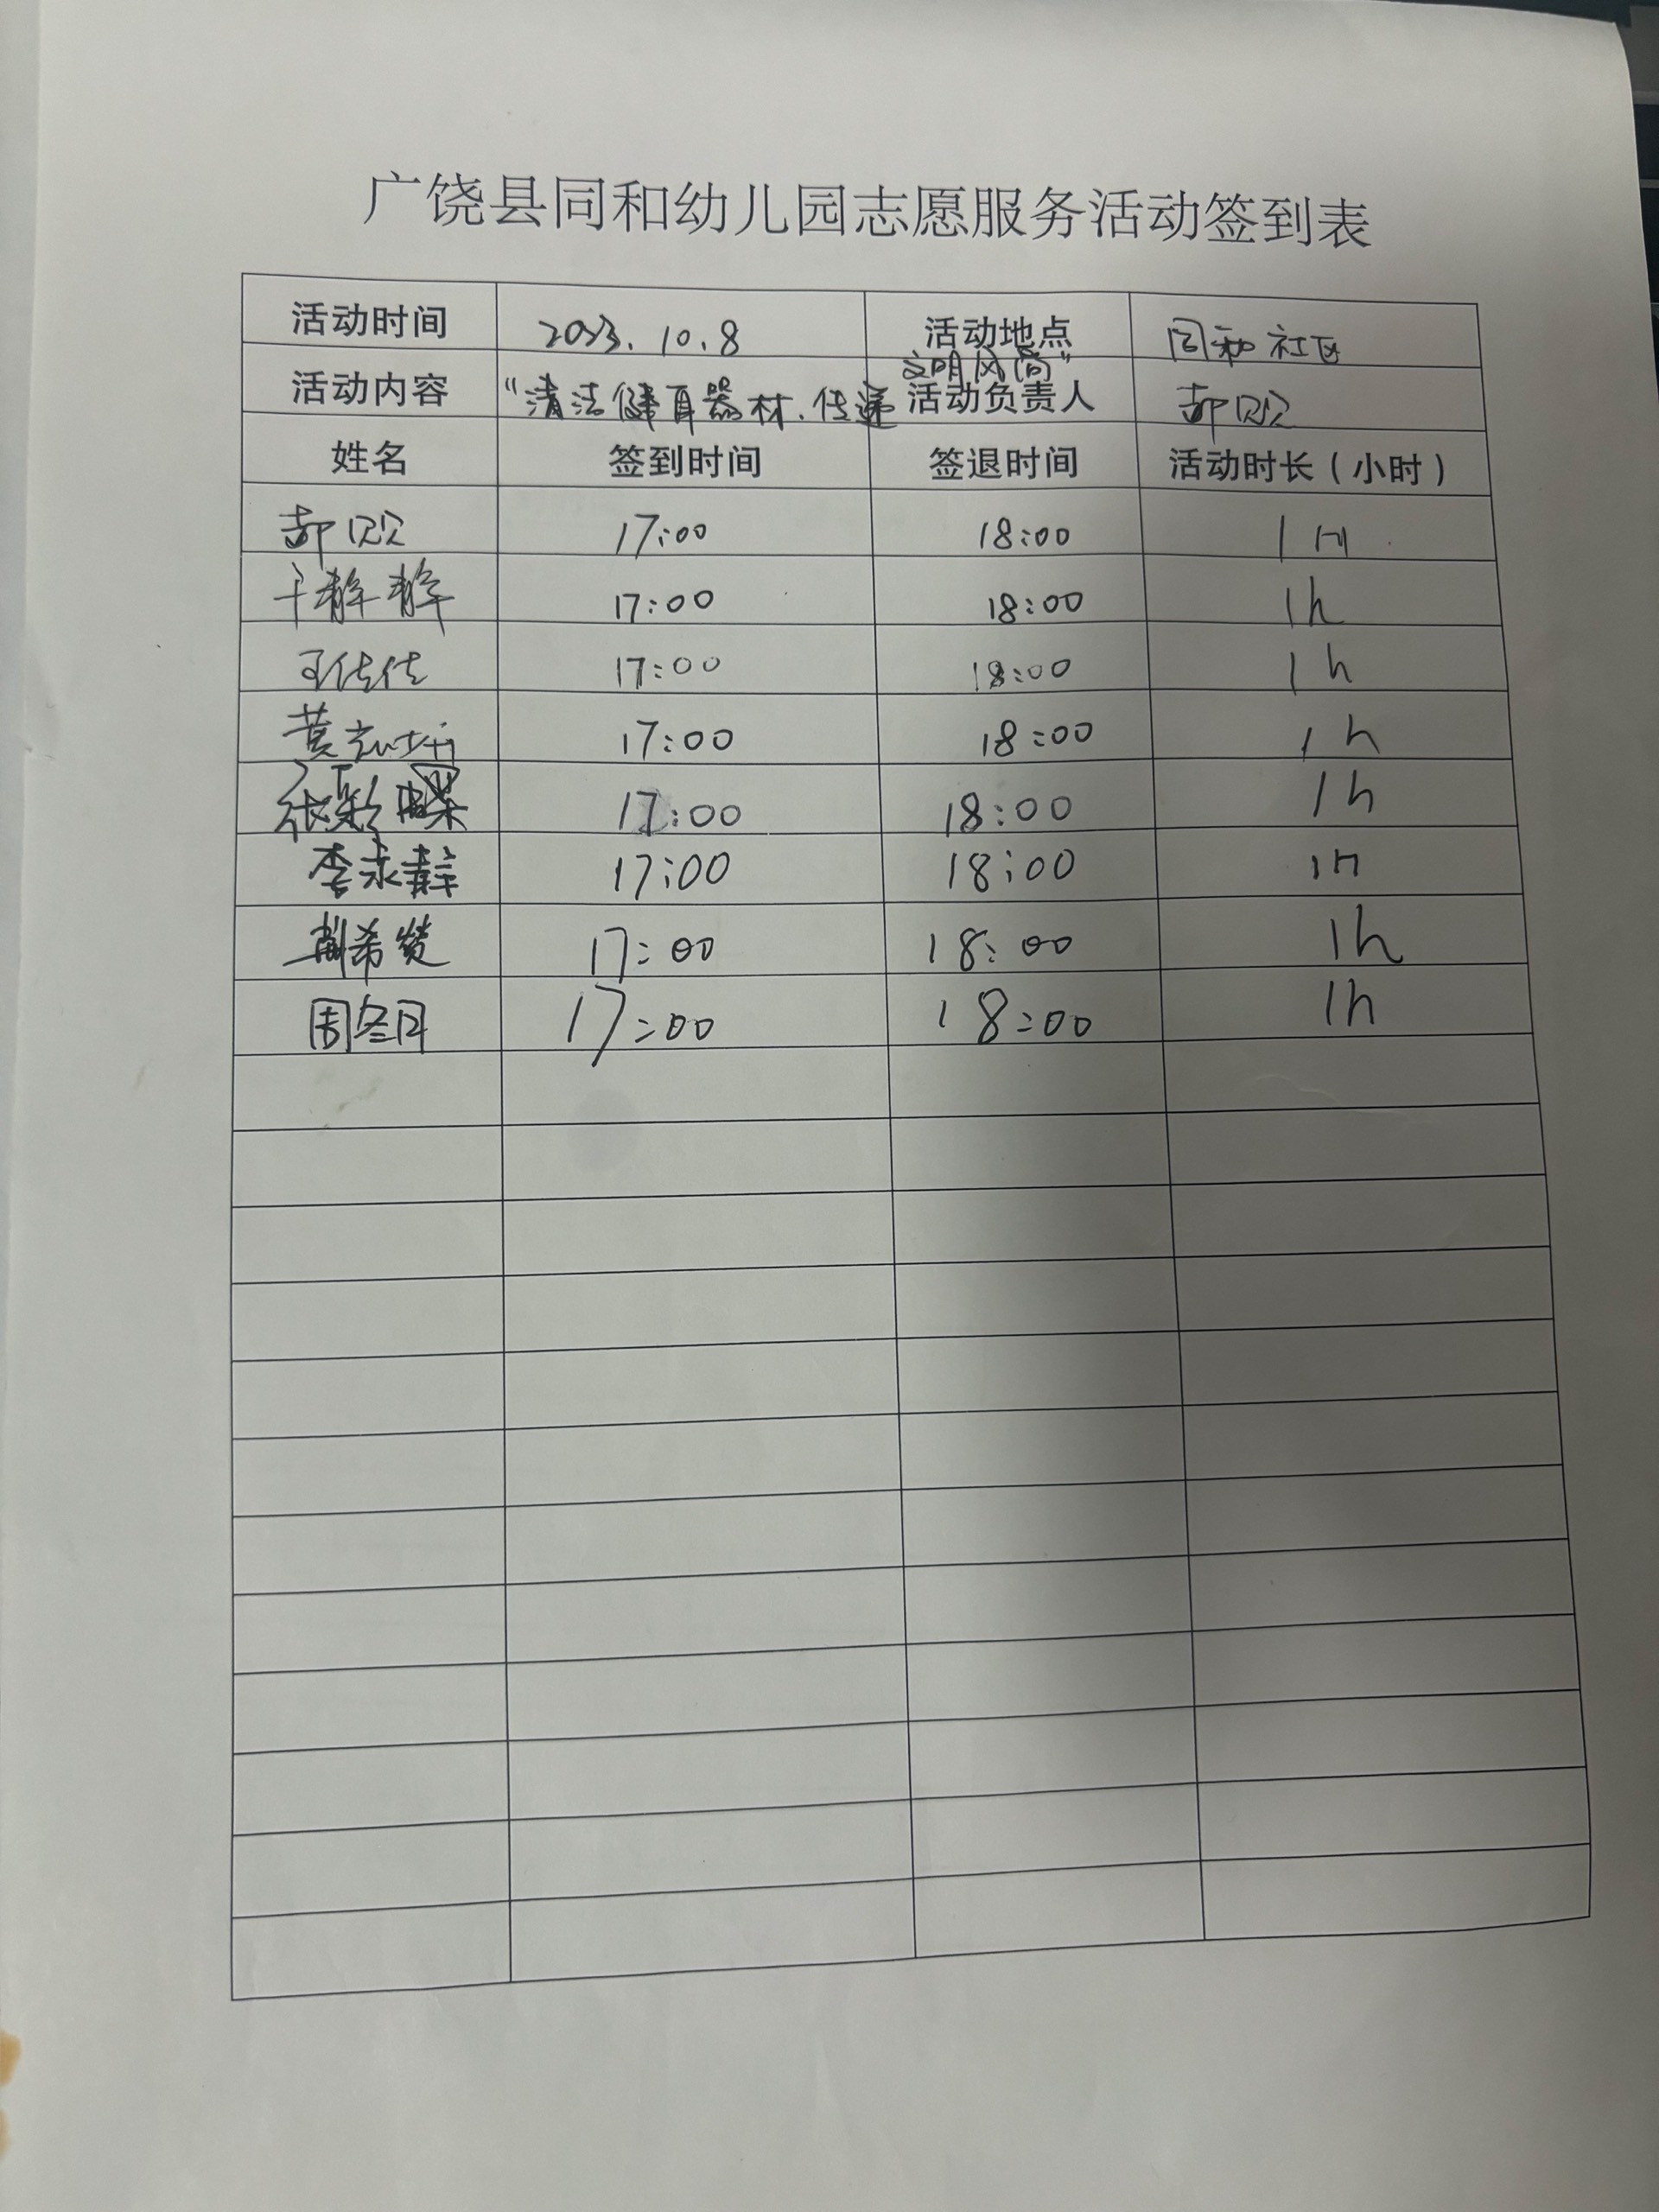 广饶县同和幼儿园志愿服务活动签到表
活动时间 2023.10.8 活动地点 同和社区
文明风尚"
活动内容 "清洁健身器材.传递 活动负责人 郝贝贝
姓名 签到时间 签退时间 活动时长(小时)
郝贝贝 17:00 18:00 1H
于静静 17:00 18:00 1h
王佳佳 17:00 18:00 1h
黄 17:00 18:00 1h
张彩蝶 17:00 18:00 1h
李永 17:00 18:00 1h
希 17:00 18:00 1h
周冬月 17:00 18:00 1h